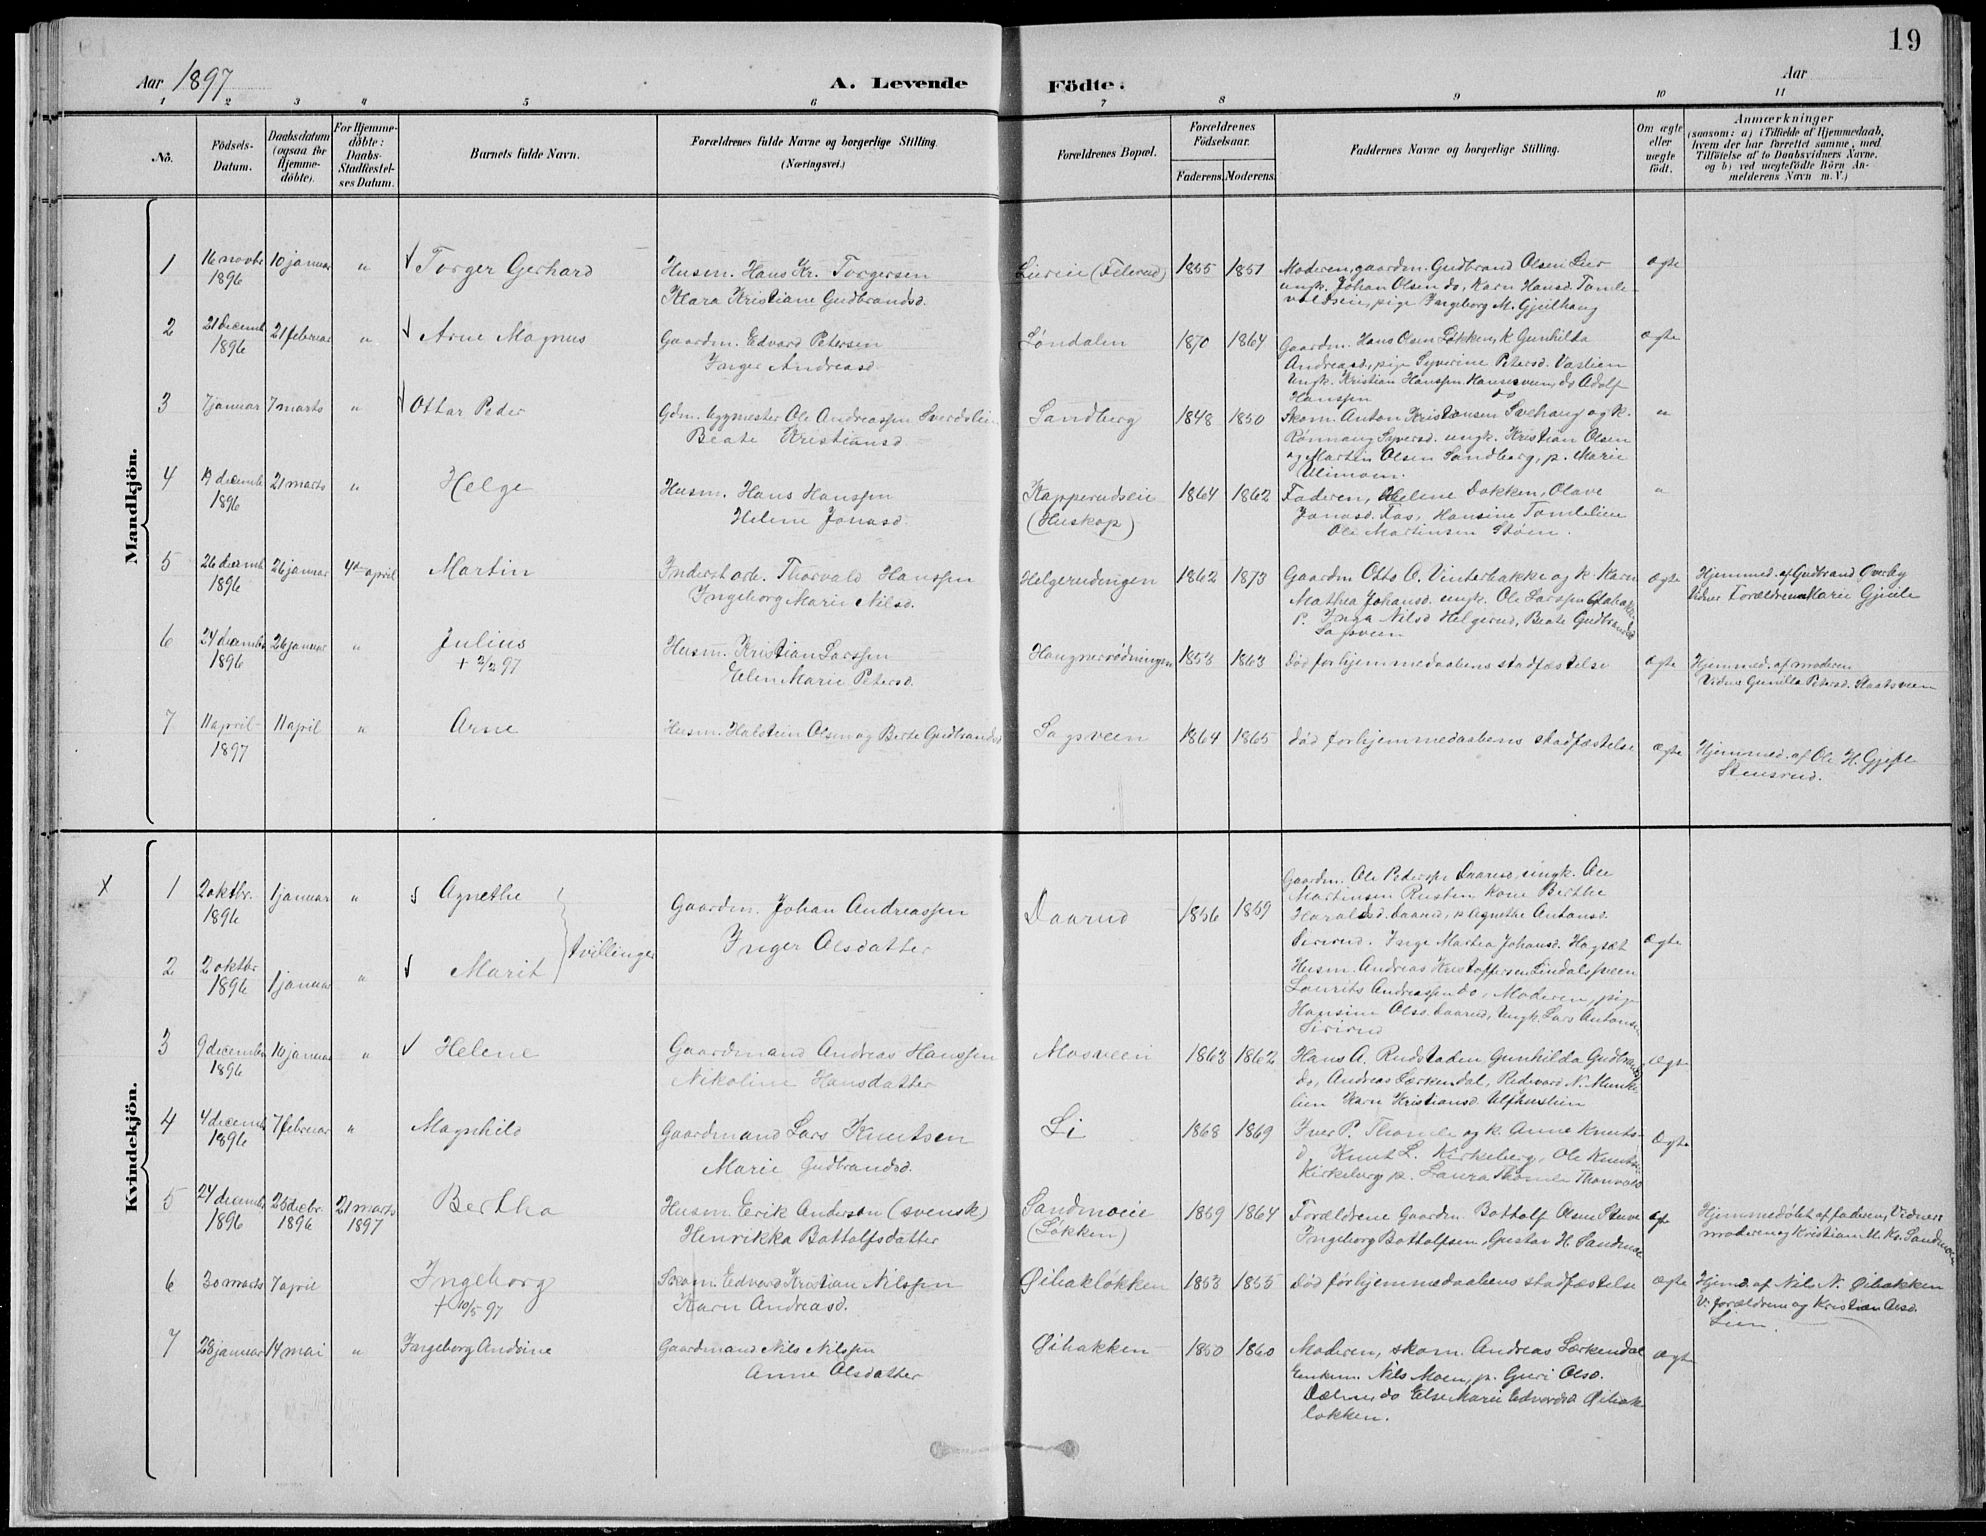 19
Aar 1897
A. Levende
Födte.
Aar
1 2 3 4 5 6 7 8 9 10 11
No.
Födsels-Datum.
Daabsdatum (ogsaa for Hjemme-döbte).
For Hjemme-döbte: Daabs-Stadfæstel-ses Datum.
Barnets fulde Navn.
Forældrenes fulde Navne og borgerlige Stilling. (Næringsvei.)
Forældrenes Bopæl.
Forældrenes Födselsaar.
Faderens. Moderens.
Faddernes Navne og borgerlige Stilling.
Om ægte eller uægte födt.
Anmærkninger
(saasom: a) i Tilfælde af Hjemmedaab, hvem der har forrettet samme, med Tilföielse af to Daabsvidners Navne, og b) ved uægtefödte Börn An-melderens Navn m. V.)
Mandkjön.
1 16 novbr 1896 10 januar " Torger Gerhard
Husm. Hans Kr. Torgersen
Klara Kristiane Gudbrandsd.
Liereie (Felerud) 1855 1851
Moderen, gaardm. Gudbrand Olsen Lier
ungk. Johan Olsen do, Karn Hansd. Tomle-
voldseie, pige Ingeborg M. Gjeilhaug
ægte
2 21 decemb 1896 21 februar " Arne Magnus
Gaardm. Edvard Petersen
Inger Andreasd.
Løndalen 1870 1864
Gaardm. Hans Olsen Løkken, k. Gunhilda
Andreasd, pige Syverine Petersd. Vaslien
Ungk. Kristian Hanssen Hansesveen, do Adolf
Hanssen do
ægte
3 7 januar 7 marts " Ottar Peder
Gdm. bygmester Ole Andreassen Sverdslien
Beate Kristiansd
Sandberg 1848 1850
Skom. Anton Kristiansen Svehaug og k.
Rønnaug Syversd. ungk. Kristian Olsen
og Martin Olsen Sandberg, p. Marie
Ulimoen.
"
4 19 decemb 1896 21 marts " Helge
Husm. Hans Hanssen
Helene Jonasd.
Kapperudseie (Huskop) 1864 1862
Faderen, Helene Dokken, Olave
Jonasd. Fos, Hansine Tomlelien
Ole Martinsen Støen.
"
5 26 decemb 1896 26 januar 4de april Martin
Inderst arb. Thorvald Hanssen
Ingeborg Marie Nilsd.
Helgerudengen 1862 1873
Gaardm Otto O. Vinterbakke og k. Karn
Mathea Johansd. ungk. Ole Larssen
P. Inga Nilsd Helgerud, Beate Gudbrandsd
Sagsveen
ægte
Hjemmed. af Gudbrand Øverby
Vidner Forældrene Marie Gjeile
6 24 decembr 1896 26 januar " Julius
+ 2/2 97
Husm. Kristian Larssen
Elen Marie Petersd.
Haugnersødningen 1853 1863
død før hjemmedaabens stadfæstelse
ægte
Hjemmed. af moderen
Vidne Gunilla Petersd. Staatsveen
7 11 april 1897 11 april " Arne
Husm. Halstein Olsen og Berte Gudbrandsd
Sagsveen 1864 1865
død før hjemmedaabens stadfæstelse
ægte
Hjemmed. af Ole H. Gjeile
Stensrud.
Kvindekjön.
X 1 2 oktbr. 1896 1 januar " Agnethe
2 2 oktbr 1896 1 januar " Marit
tvillinger
Gaardm. Johan Andreassen
Inger Olsdatter
Daarud 1856 1859
Gaardm. Ole Pederse Daarud, ungk. Ole
Martinsen Rusten kone Berthe
Haralsd. Daarud, p Agnethe Antonsd.
Sirirud. Inge Martea Johansd. Hagsæt
Husm. Andreas Kristoffersen Lindalsveen
Laurits Andreassen do, Moderen, pige
Hansine Olsd. Daarud, Ungk. Lars Antonse
Sirirud
ægte
3 9 december 1896 10 januar " Helene
Gaardmand Andreas Hanssen
Nikoline Hansdatter
Mosveen 1863 1862
Hans A. Rudstaden Gunhilda Gudbrandsd
do, Andreas Lærkendal, Redevard N. Munke
lien Karn Kristiansd. Ulfhuslien
ægte
4 4 decemb 1896 7 februar " Magnhild
Gaardmand Lars Knutsen
Marie Gudbrandsd.
Li 1868 1869
Iver P. Thomle og k. Anne Knuts-
d, Knut L. Kirkeberg, Ole Knuts.
Kirkeberg p. Laura Thomle Thorvalds
ægte
5 24 decemb 1896 25 decbr. 1896 21 marts 1897 Bertha
Husm. Erik Anderson (svensk)
Henrikka Bottolfsdatter
Sandmoeie (Løkken) 1859 1864
Forældrene Gaardm. Bottolf Olsen Stuve
Ingeborg Bottolfsen, Gustav H. Sandmoe
ægte
Hjemmedøbt af faderen, Vidner:
moderen og Kristian M. Kr. Sandmoe
6 30 marts 7 april Ingeborg
+ 10/5 97
Skom. Edvard Kristian Nilssen
Karn Andreasd.
Øibakløkken 1853 1855
død før hjemmedaabens stadfæstelse
ægte
Hjemd. af Nils N. Øibakken
V. forældrene og Kristian Olsd.
Lien.
7 28 januar 14 mai " Ingeborg Andrine
Gaardmand Nils Nilssen
Anne Olsdatter
Øibakken 1850 1860
Moderen, skom. Andreas Lærkendal
Enkem. Nils Moen, p. Guri Olsd.
Dælen do Else Marie Edvardsd Øibak-
løkken.
ægte